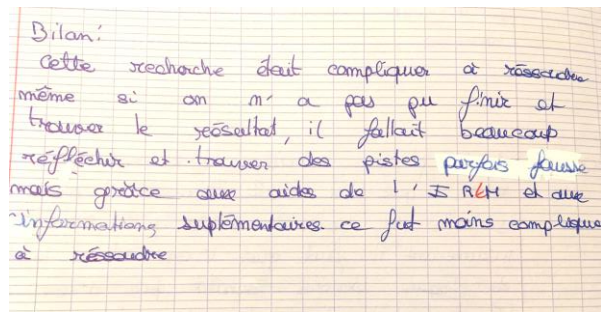 Bilan:
Cette recherche était compliquer à réssoudre
même si on n'a pas pu finir et
trouver le résultat, il fallait beaucoup
réfléchir et trouver des pistes parfois fausse
mais grâce aux aides de l'IREM et aux
informations suplémentaires ce fut moins compliqué
à réssoudre